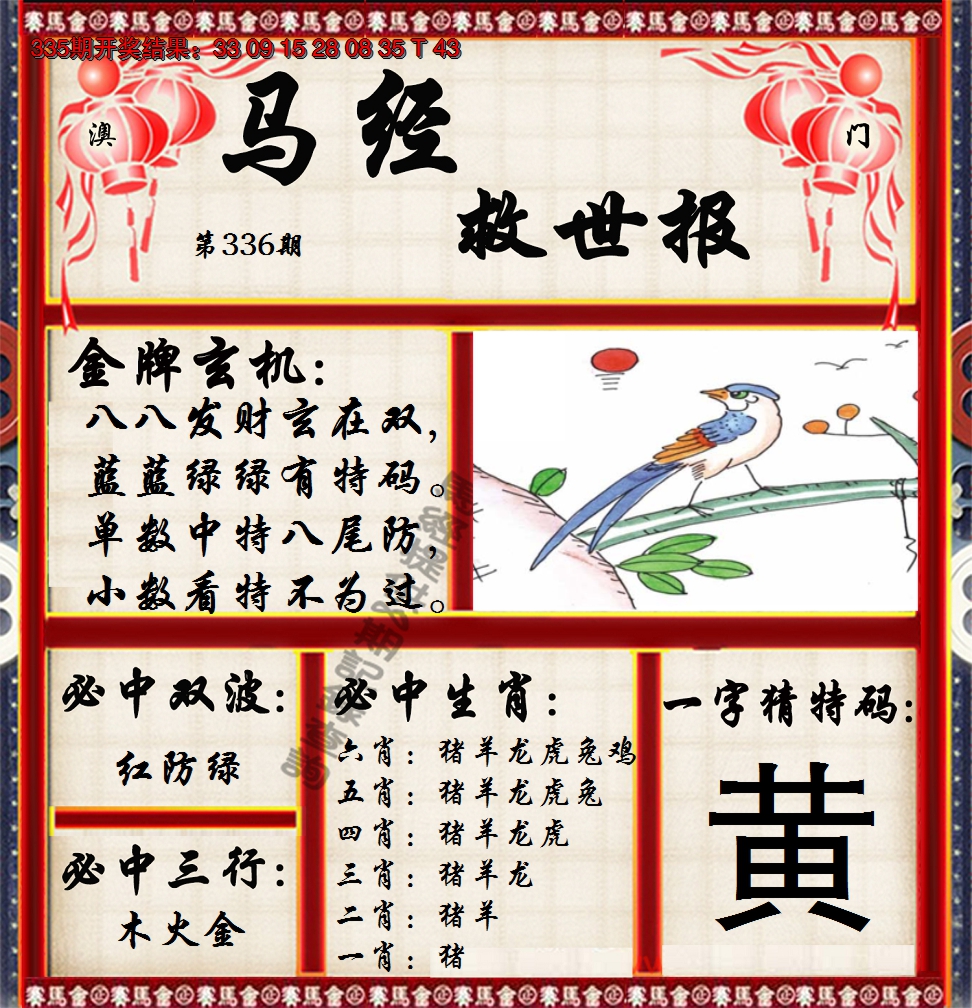 335期开奖结果：33 09 15 28 08 35 T 43
澳
门
马经
救世报
第336期
金牌玄机：
八八发财玄在双，
蓝蓝绿绿有特码。
单数中特八尾防，
小数看特不为过。
必中双波：
红防绿
必中三行：
木火金
必中生肖：
六肖：猪羊龙虎兔鸡
五肖：猪羊龙虎兔
四肖：猪羊龙虎
三肖：猪羊龙
二肖：猪羊
一肖：猪
一字猜特码：
黄